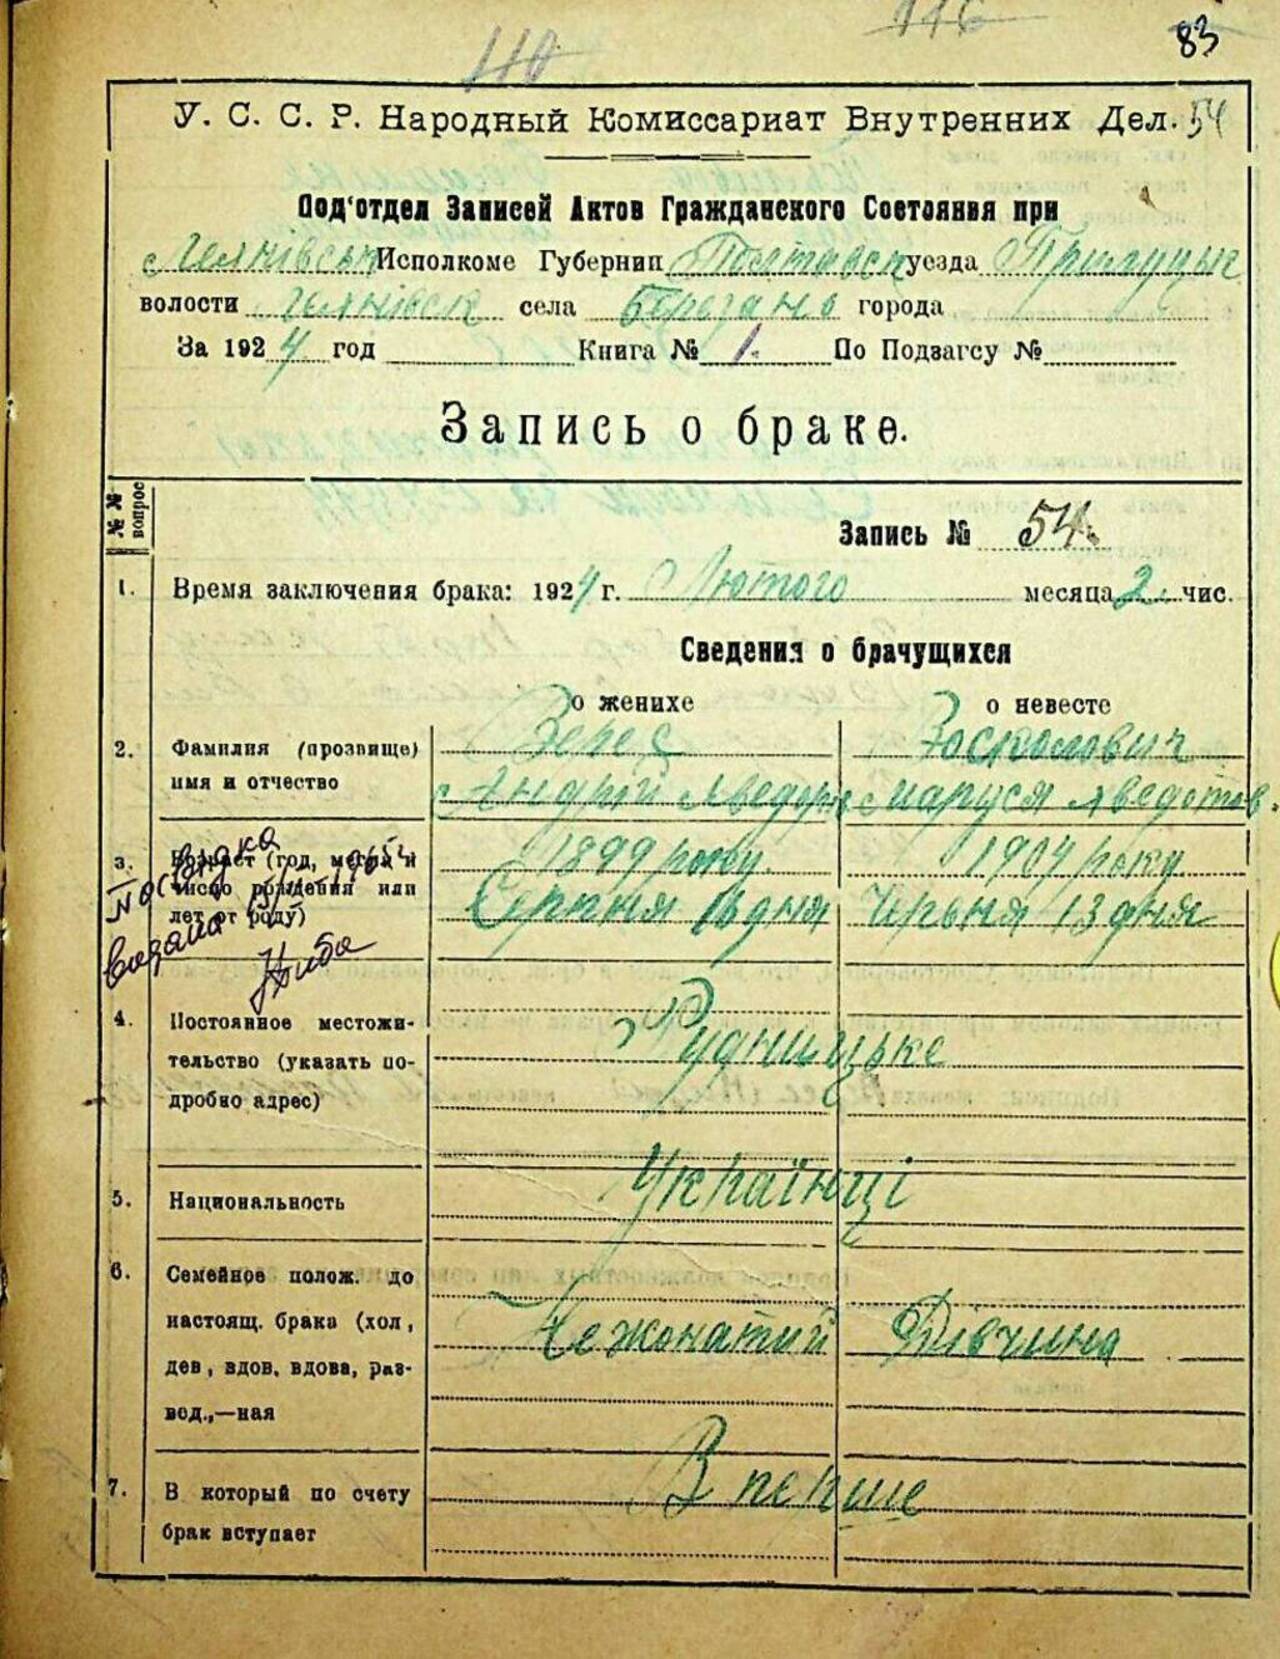 116
110
83
У. С. С. Р. Народный Комиссариат Внутренних Дел. 54
Под'отдел Записей Актов Гражданского Состояния при
Исполкоме Губернии Полтавск уезда Прилуцьк
волости села Березань города
За 1924 год Книга № 1. По Подзагсу №
Запись о браке.
№ № вопрос
Запись № 54.
1. Время заключения брака: 1924 г. Лютого месяца 2 чис.
Сведения о брачущихся
о женихе о невесте
2. Фамилия (прозвище) имя и отчество
Верес
Андрій
Маруся
3. Возраст (год, месяц и число рождения или лет от роду)
1899 року. 1904 року.
Серпня 18 дня Червня 13 дня
4. Постоянное местожительство (указать подробно адрес)
Рудницьке
5. Национальность
Українці
6. Семейное полож. до настоящ. брака (хол, дев, вдов, вдова, развед.,—ная
Нежонатий Дівчина
7. В который по счету брак вступает
В перше